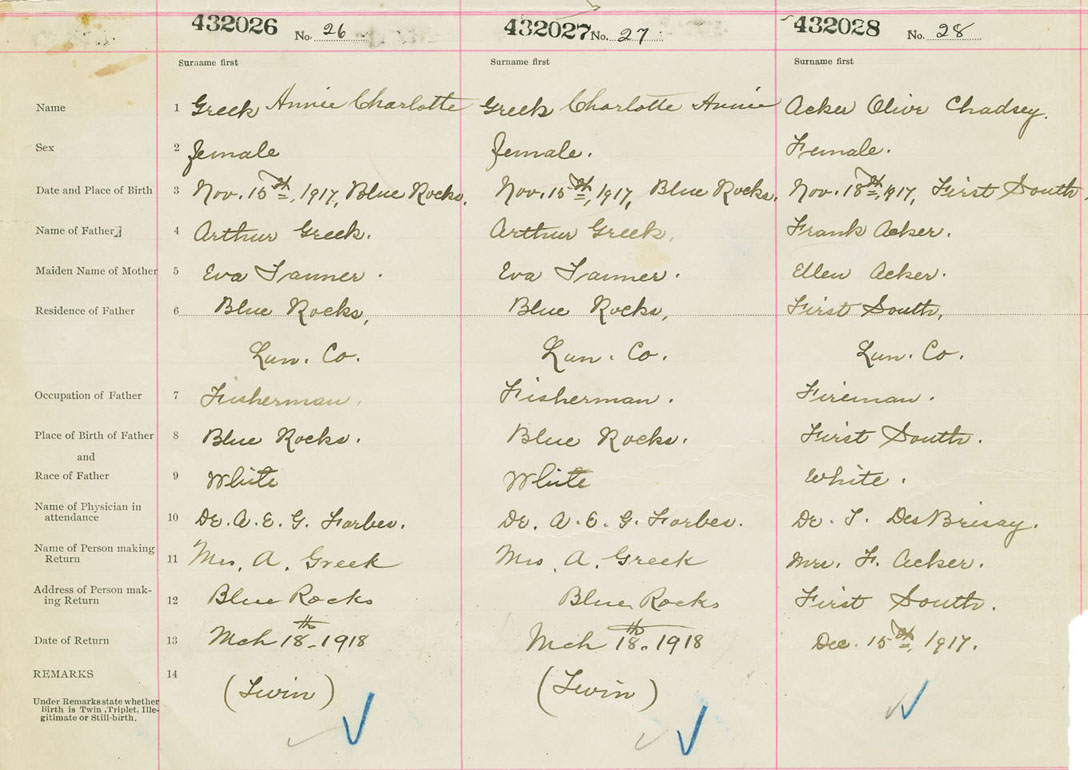 432026 No. 26 432027 No. 27. 432028 No. 28
Surname first Surname first Surname first
Name 1 Greek Annie Charlotte Greek Charlotte Annie Acker Olive Chadsey.
Sex 2 female female. Female.
Date and Place of Birth 3 Nov. 15th, 1917, Blue Rocks. Nov. 15th, 1917, Blue Rocks. Nov. 18th, 1917, First South.
Name of Father 4 Arthur Greek. Arthur Greek. Frank Acker.
Maiden Name of Mother 5 Eva Tanner. Eva Tanner. Ellen Acker.
Residence of Father 6 Blue Rocks, Blue Rocks, First South,
Lun. Co. Lun. Co. Lun. Co.
Occupation of Father 7 Fisherman. Fisherman. Fireman.
Place of Birth of Father 8 Blue Rocks. Blue Rocks. First South.
and
Race of Father 9 White White White.
Name of Physician in
attendance 10 Dr. A. E. G. Forbes. Dr. A. E. G. Forbes. Dr. T. DesBrisay.
Name of Person making
Return 11 Mrs. A. Greek Mrs. A. Greek Mrs. F. Acker.
Address of Person mak-
ing Return 12 Blue Rocks Blue Rocks First South.
Date of Return 13 Mch 18th. 1918 Mch 18th. 1918 Dec. 15th, 1917.
REMARKS 14 (Twin) (Twin)
Under Remarks state whether
Birth is Twin, Triplet, Ille-
gitimate or Still-birth.